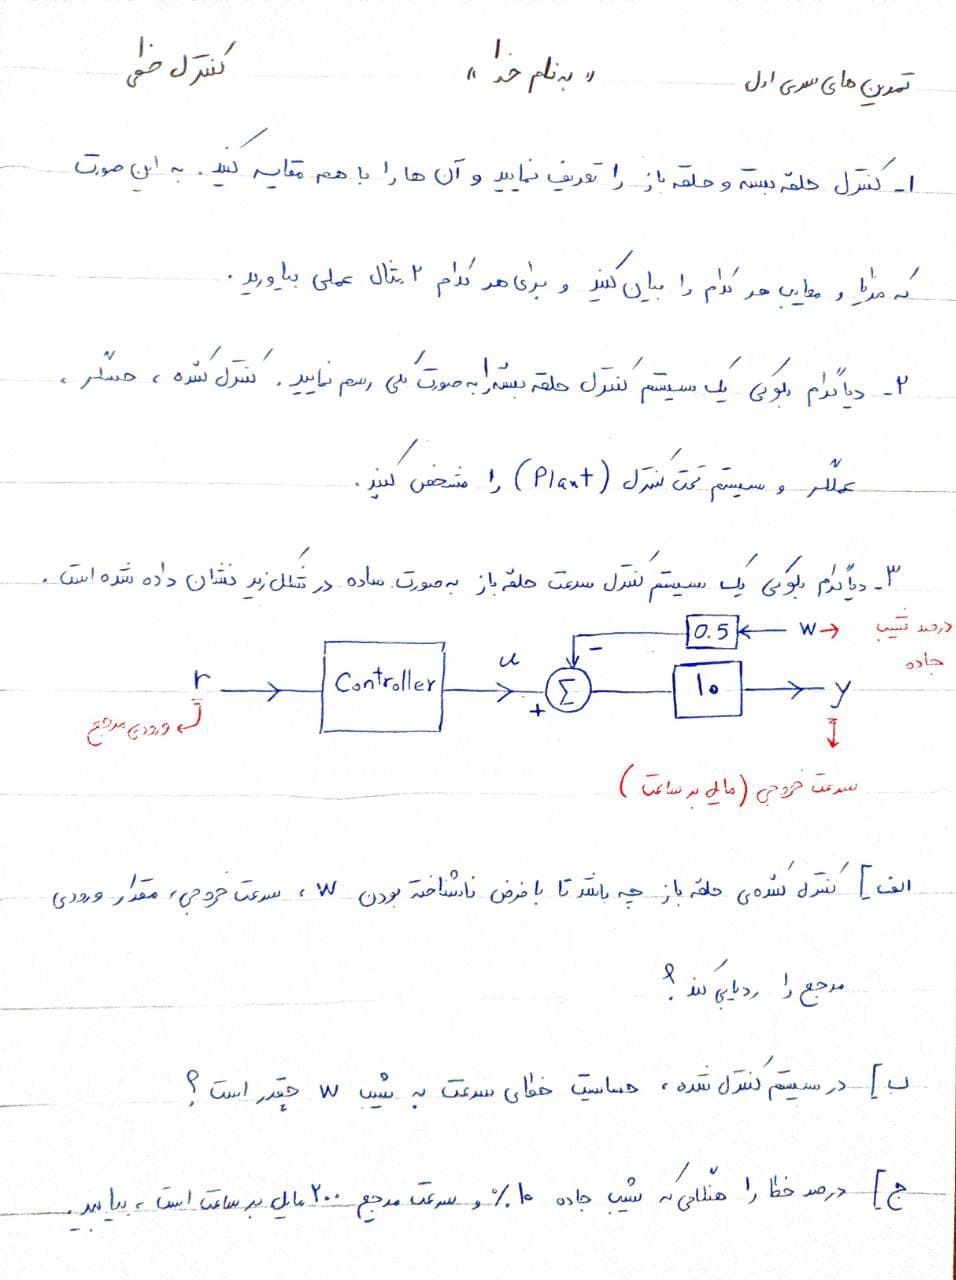 تمرین های سری اول
« به نام خدا »
کنترل خطی
۱- کنترل حلقه بسته و حلقه باز را تعریف نمایید و آن ها را با هم مقایسه کنید. به این صورت
که مزایا و معایب هر کدام را بیان کنید و برای هر کدام ۲ مثال عملی بیاورید.
۲- دیاگرام بلوکی یک سیستم کنترل حلقه بسته را به صورت کلی رسم نمایید. کنترل کننده ، حسگر ،
عملگر و سیستم تحت کنترل (Plant) را مشخص کنید.
۳- دیاگرام بلوکی یک سیستم کنترل سرعت حلقه باز به صورت ساده در شکل زیر نشان داده شده است.
0.5 w درصد شیب
جاده
r Controller u + Σ - 10 y
ورودی مرجع
سرعت خروجی (مایل بر ساعت)
الف] کنترل کننده‌ی حلقه باز چه باشد تا با فرض ناشناخته بودن w ، سرعت خروجی، مقدار ورودی
مرجع را ردیابی کند ؟
ب] در سیستم کنترل شده ، حساسیت خطای سرعت به شیب w چقدر است ؟
ج] درصد خطا را هنگامی که شیب جاده ۱۰ % و سرعت مرجع ۲۰۰ مایل بر ساعت است ، بیابید.